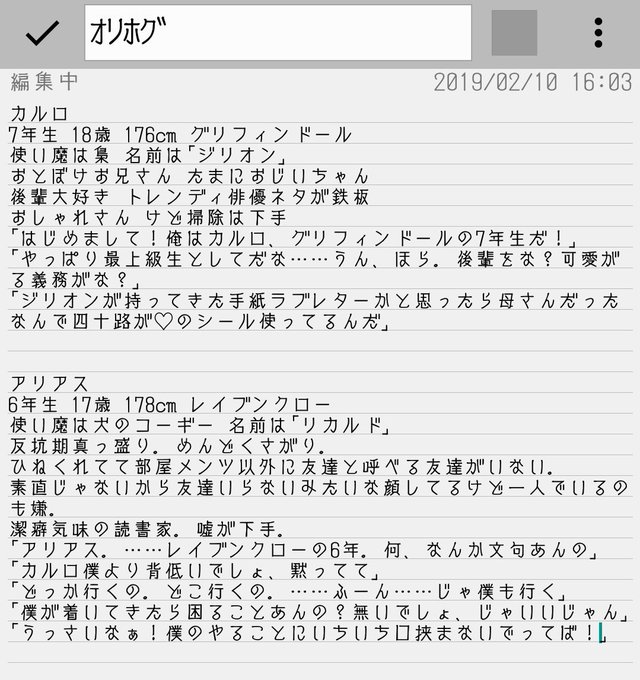 ｵﾘﾎｸﾞ
編集中 2019/02/10 16:03
カルロ
7年生 18歳 176cm グリフィンドール
使い魔は梟 名前は「ジリオン」
おとぼけお兄さん たまにおじいちゃん
後輩大好き トレンディ俳優ネタが鉄板
おしゃれさん けど掃除は下手
「はじめまして！俺はカルロ、グリフィンドールの7年生だ！」
「やっぱり最上級生としてだな……うん、ほら。後輩をな？可愛が
る義務がな？」
「ジリオンが持ってきた手紙ラブレターかと思ったら母さんだった
なんで四十路が♡のシール使ってるんだ」
アリアス
6年生 17歳 178cm レイブンクロー
使い魔は犬のコーギー 名前は「リカルド」
反坑期真っ盛り。めんどくさがり。
ひねくれてて部屋メンツ以外に友達と呼べる友達がいない。
素直じゃないから友達いらないみたいな顔してるけど一人でいるの
も嫌。
潔癖気味の読書家。嘘が下手。
「アリアス。……レイブンクローの6年。何、なんか文句あんの」
「カルロ僕より背低いでしょ、黙ってて」
「どっか行くの。どこ行くの。……ふーん……じゃ僕も行く」
「僕が着いてきたら困ることあんの？無いでしょ、じゃいいじゃん」
「うっさいなぁ！僕のやることにいちいち口挟まないでってば！」